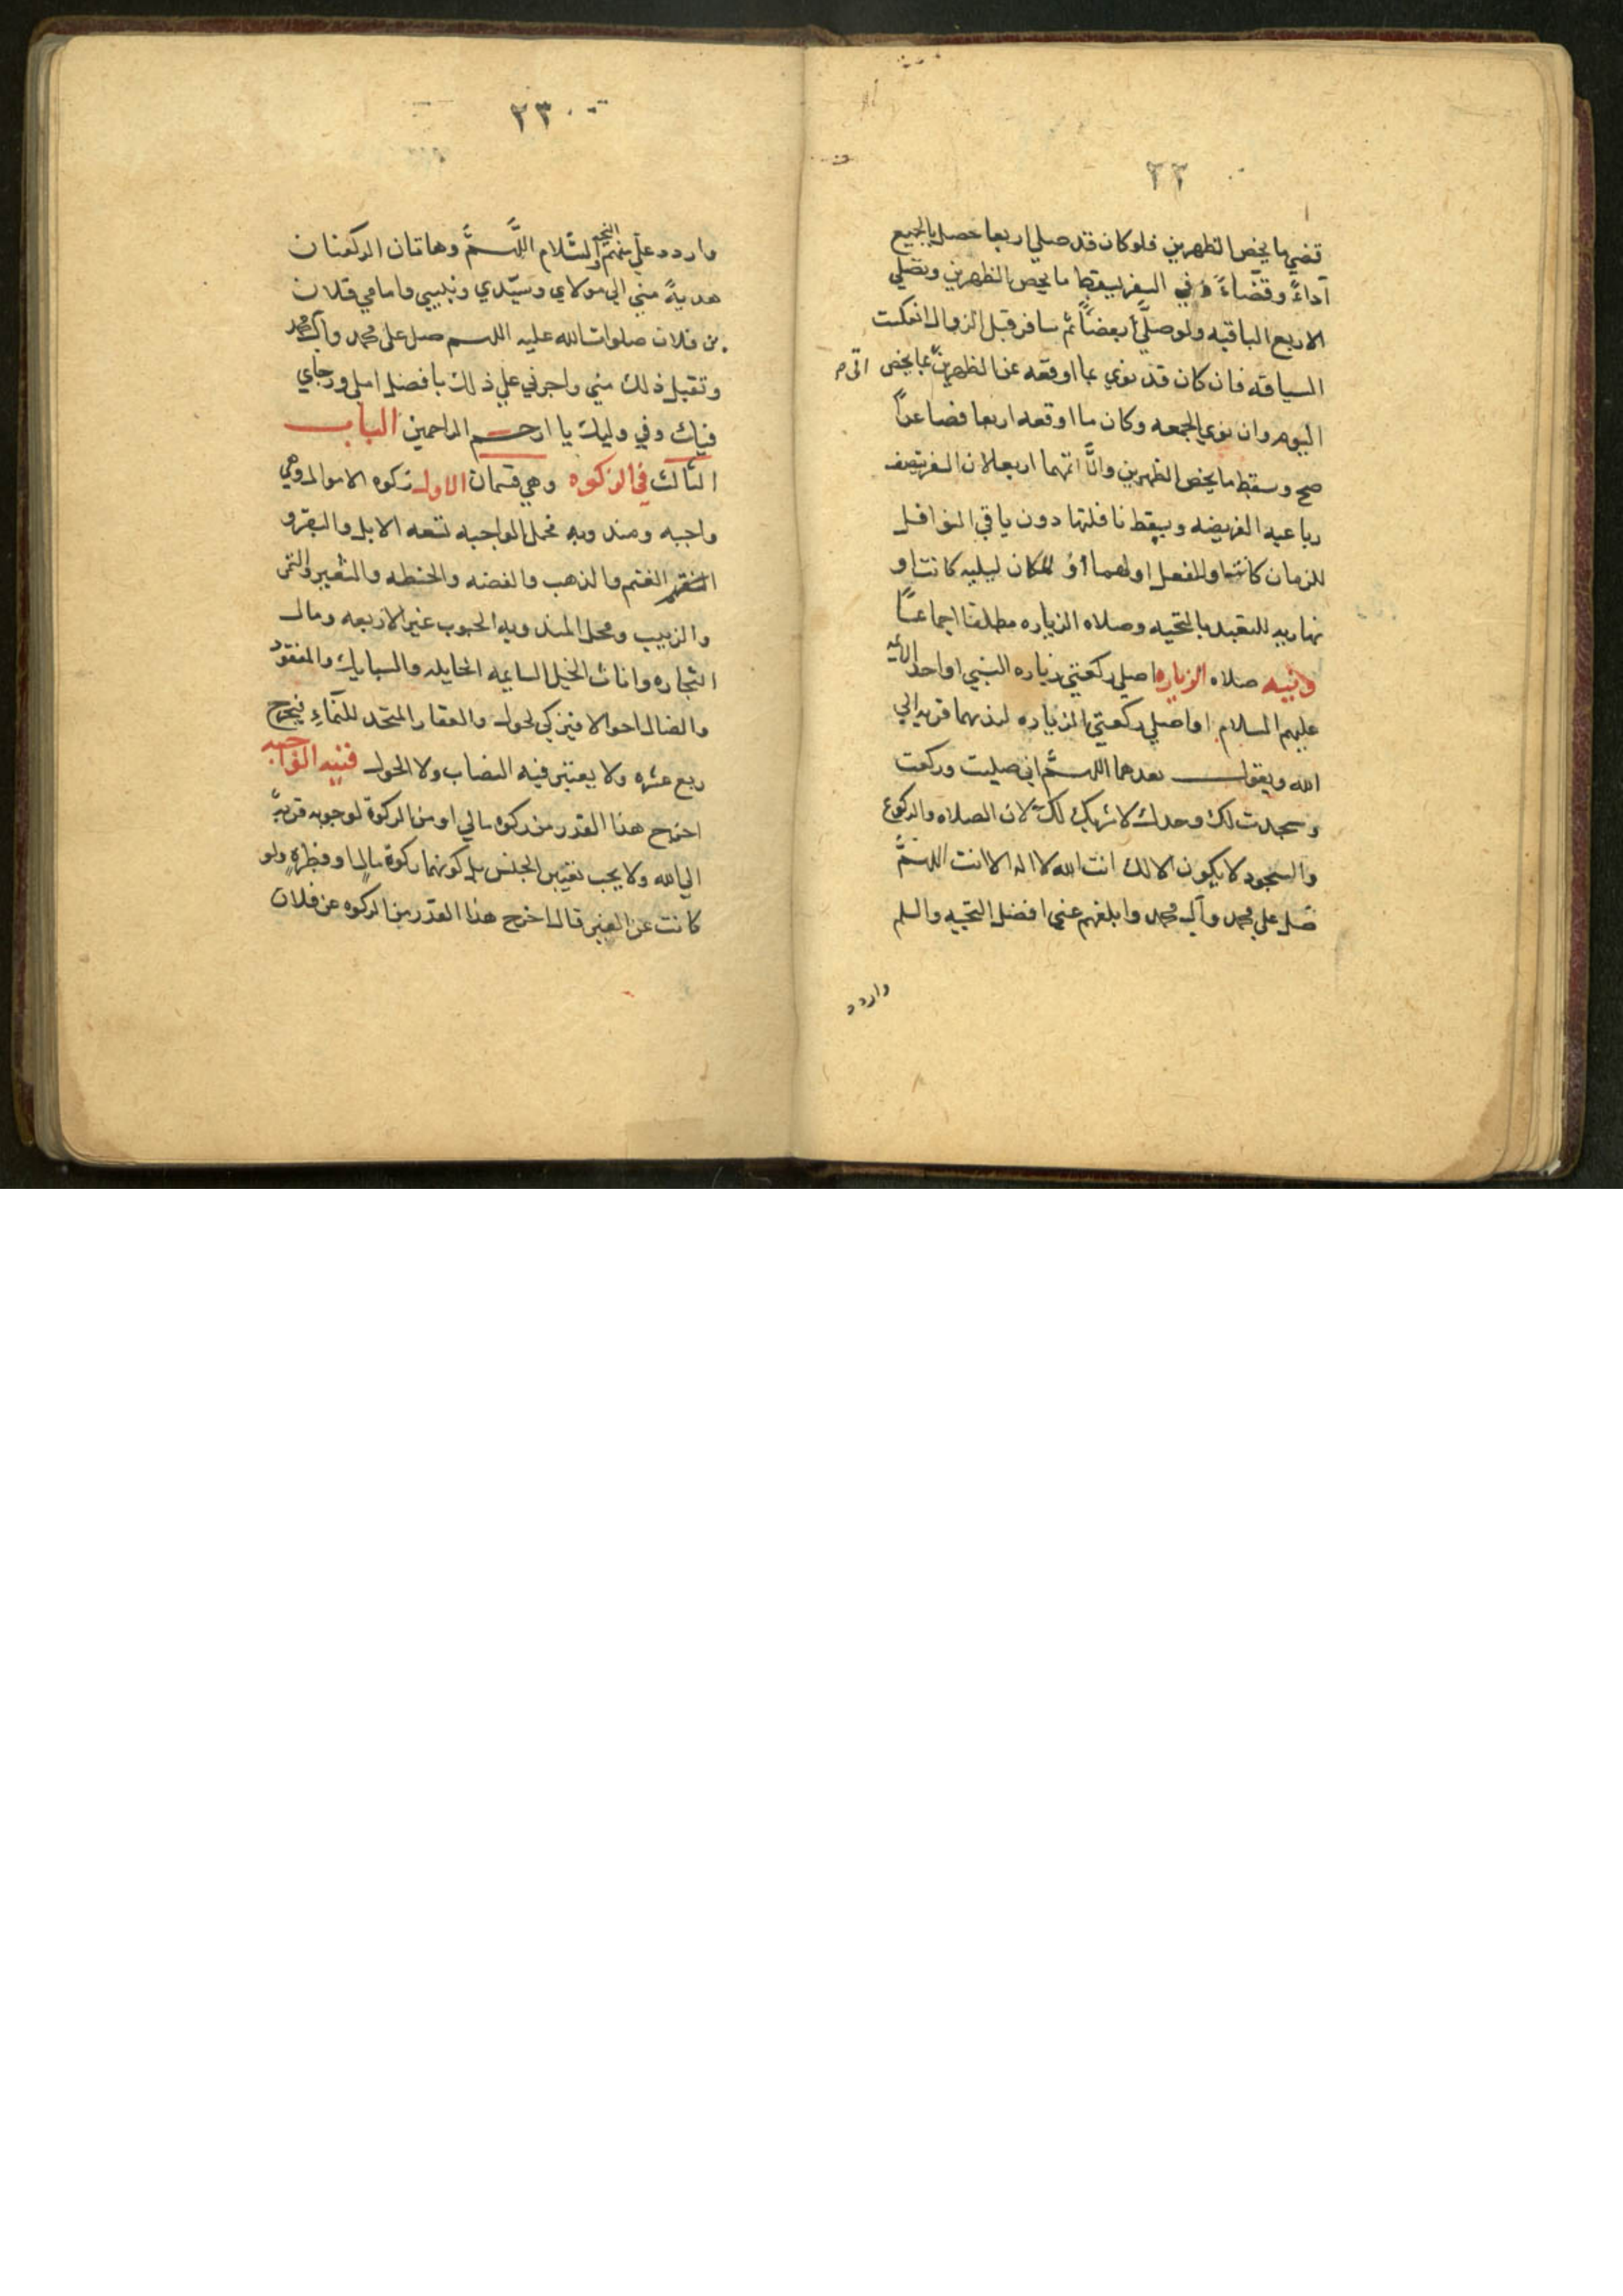 ٢٢
قضي ما يخص الظهرين فلو كان قد صلي اربعا حصل بالجميع
آداءً وقضاءً وفي السفر يسقط ما يخص الظهرين ويصلي
الاربع الباقيه ولو صلي بعضًا ثم سافر قبل الزوال انعكست
المسافه فان كان قد نوي بما اوقعه عن الظهرين بما يخص
اليوم وان نوي الجمعه وكان ما اوقعه اربعا فصاعدًا
صح وسقط ما يخص الظهرين والَّا اتمها اربعا لان السفر تنصف
رباعيه الفريضه ويسقط نافلتها دون باقي النوافل
للزمان كانت او للفعل او لهما أو للمكان ليليه كانت او
نهاريه للتقيد بالتحيه وصلاه الزياره مطلقا اجماعًا
ونيه صلاه الزياره اصلي ركعتي زياره النبي او احد الائمه
عليهم السلام او اصلي ركعتي الزياره لندبهما قربه الي
الله ويقول بعدهما اللهم اني صليت وركعت
وسجدت لك وحدك لا شريك لك لان الصلاه والركوع
والسجود لا يكون الا لك انت الله لا اله الا انت اللهم
صل علي محمد وآل محمد وابلغهم عني افضل التحيه والسلم
واردد
٢٣
واردد علي منهم التحيه والسّلام اللَّهمَّ وهاتان الركعتان
هديةً مني الي مولاي وسيّدي ونبيي وامامي فلان
بن فلان صلوات الله عليه اللهم صل على محمد وآل محمد
وتقبل ذلك مني واجرني علي ذلك بافضل املي ورجاي
فيك وفي وليك يا ارحم الراحمين الباب
الثالث في الزكوه وهي قسمان الاول زكوه الاموال وهي
واجبه ومندوبه فمحل الواجبه تسعه الابل والبقر و
الغنم والذهب والفضه والحنطه والشعير والتمر
والزبيب ومحل المندوبه الحبوب غير الاربعه ومال
التجاره واناث الخيل السايمه الحايله والسبايك والمفقود
والضال احوالا فيزكي لحول والعقار المتخد للنّماءِ فيخرج
ربع عشره ولا يعتبر فيه النصاب ولا الحول فنيه الواجبه
اخرج هذا القدر من زكوه مالي او من الزكوة لوجوبه قربةً
الي الله ولا يجب تعيين الجنس بل كونها زكوة مالٍ او فطرهٍ ولو
كانت عن الغير قال اخرج هذا القدر من الزكوه عن فلان